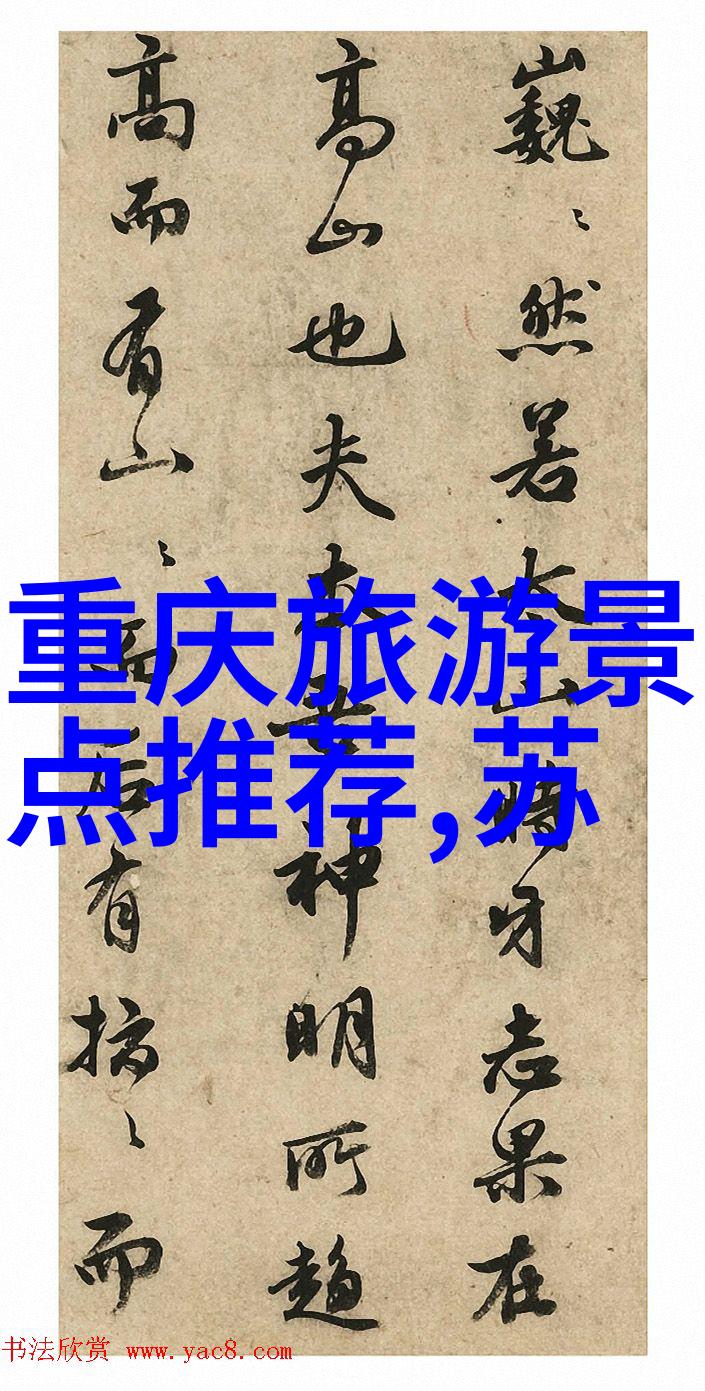 巍〻然若太山時牙志果在
高山也夫神明所趨
高而有山〻高后有搞〻而
重庆旅游景
点推荐,苏
书法欣赏 www.yac8.com